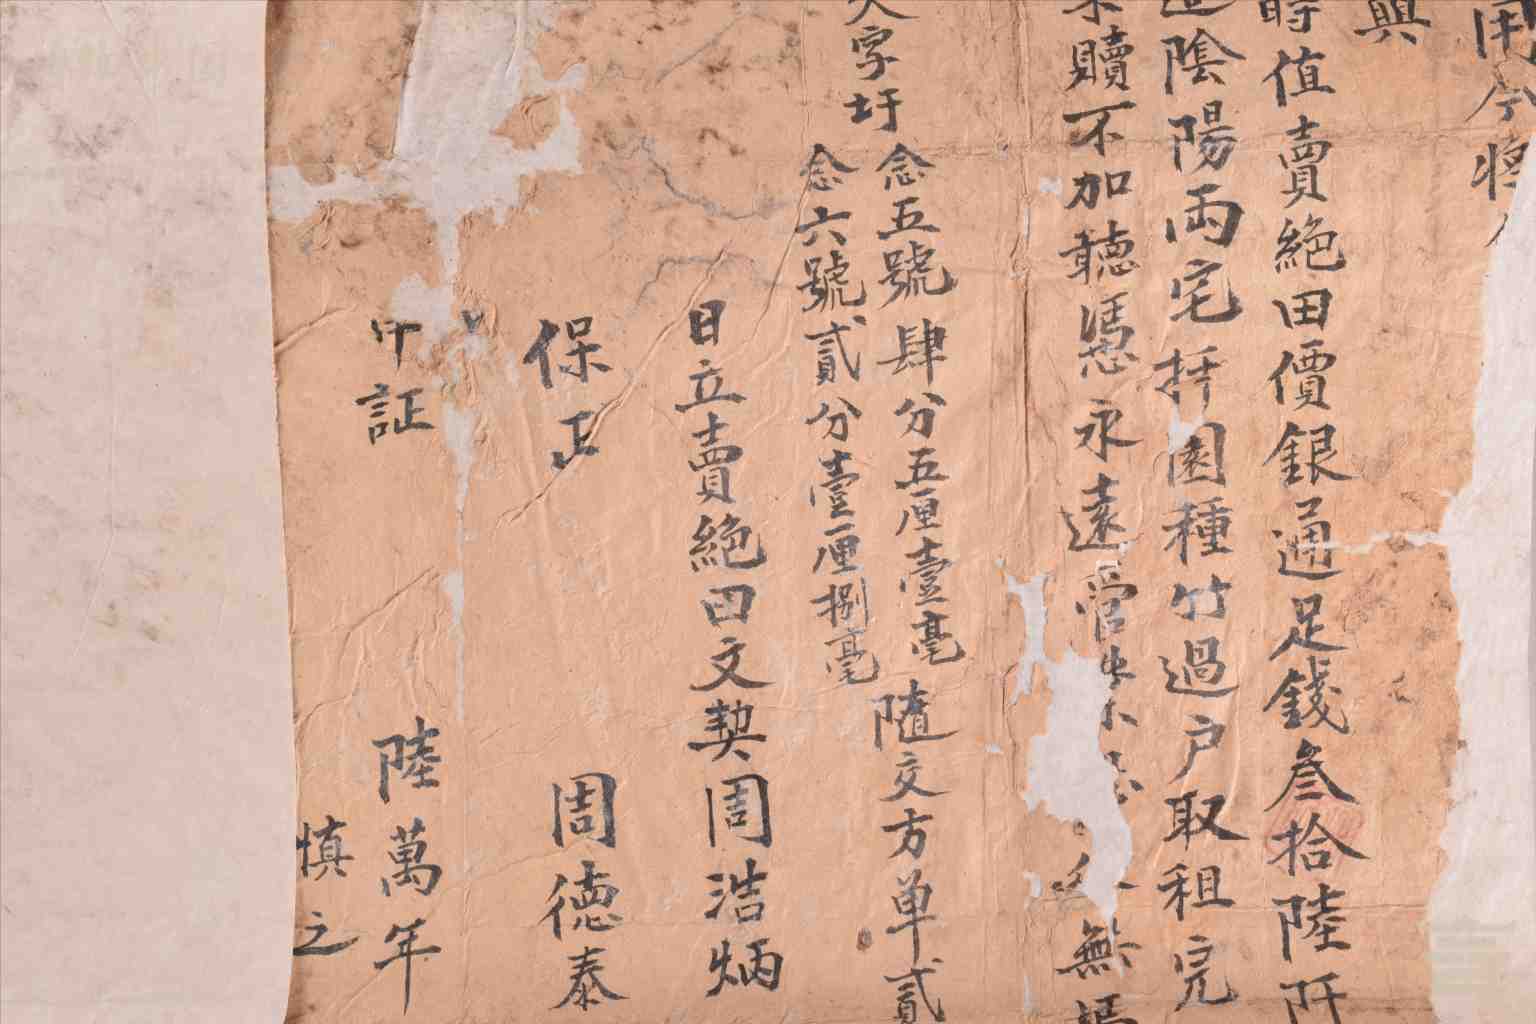 用今將
與
時值賣絕田價銀通足錢叁拾陸阡
造陰陽兩宅扦園種竹過户取租完
不贖不加聽憑永遠管
無憑
字圩
念五號肆分五厘壹毫
念六號貳分壹厘捌毫
隨交方单貳
日立賣絕田文契周浩炳
保正 周德泰
中証 陸萬年
慎之